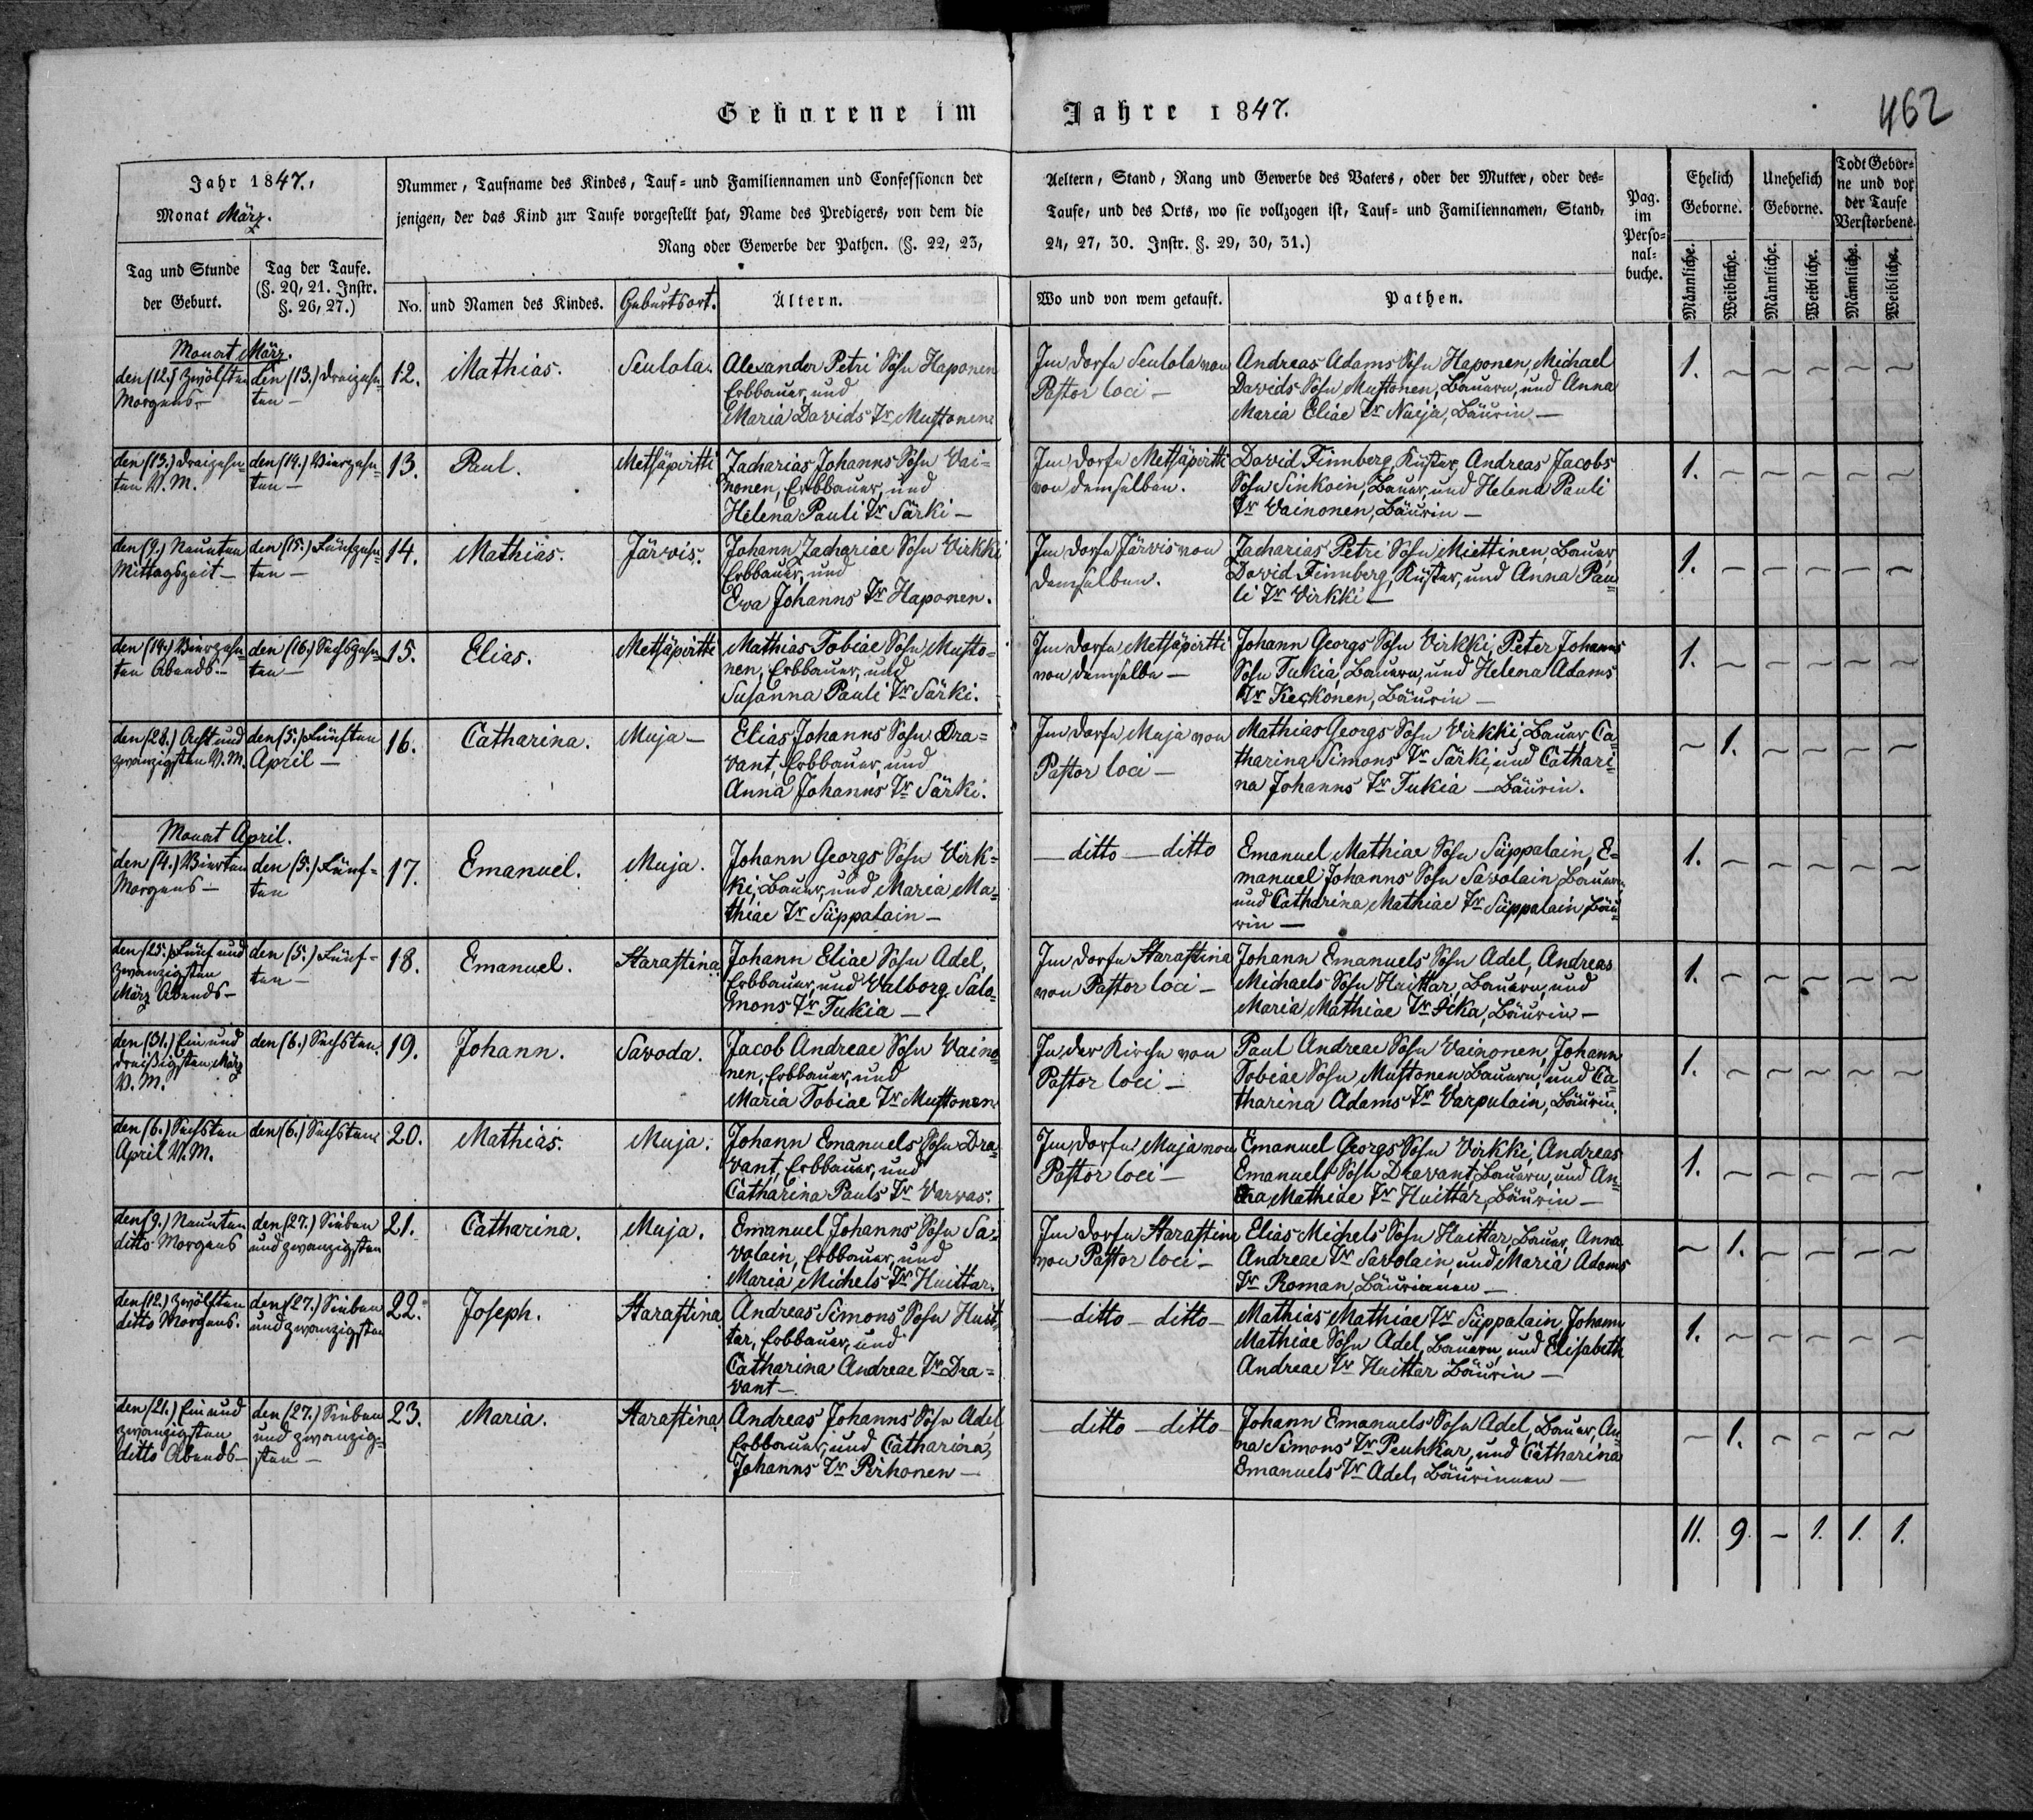 Geborene im Jahre 1847.
462
Jahr 1847.,
Monat März.
Nummer, Taufname des Kindes, Tauf= und Familiennamen und Confessionen der
jenigen, der das Kind zur Taufe vorgestellt hat, Name des Predigers, von dem die
Rang oder Gewerbe der Pathen. (§. 22, 23,
Aeltern, Stand, Rang und Gewerbe des Vaters, oder der Mutter, oder des=
Taufe, und des Orts, wo sie vollzogen ist, Tauf= und Familiennamen, Stand,
24, 27, 30. Instr. §. 29, 30, 31.)
Pag.
im
Perso=
nal=
buche.
Ehelich
Geborne.
Unehelich
Geborne.
Todt Gebor=
ne und vor
der Taufe
Verstorbene.
Tag und Stunde
der Geburt.
Tag der Taufe.
(§. 20, 21. Instr.
§. 26, 27.)
No. und Namen des Kindes. Geburtsort. Altern.
Wo und von wem getauft. Pathen.
Männliche. Weibliche. Männliche. Weibliche. Männliche. Weibliche.
Monat März.
den (12.) Zwölften
Morgens –
den (13.) Dreizehn-
ten –
12. Mathias. Seulola.
Alexander Petri Sohn Haponen
Erbbauer, und
Maria Davids Tr Mustonen
Im Dorfe Seulola von
Pastor loci –
Andreas Adams Sohn Haponen, Michael
Davids Sohn Mustonen, Bauern, und Anna
Maria Eliae Tr Naija, Bäurin. –
1. – – – – –
den (13.) Dreizehn-
ten V. M.
den (14.) Vierzehn-
ten –
13. Paul. Metsäpirtti
Zacharias Johanns Sohn Vai=
nonen, Erbbauer, und
Helena Pauli Tr Särki –
Im Dorfe Metsäpirtti
von demselben.
David Finnberg, Küster, Andreas Jacobs
Sohn Sinkoin, Bauer, und Helena Pauli
Tr Vainonen, Bäurin –
1. – – – – –
den (9.) Neunten
Mittagszeit –
den (15.) Fünfzehn
ten –
14. Mathias. Järvis.
Johann Zachariae Sohn Virkki
Erbbauer, und
Eva Johanns Tr Haponen.
Im Dorfe Järvis von
demselben.
Zacharias Petri Sohn Miettinen, Bauer,
David Finnberg, Küster, und Anna Pau-
li Tr Virkki –
1. – – – – –
den (14.) Vierzehn-
ten Abends. –
den (16.) Sechszehn-
ten –
15. Elias. Metsäpirtti
Mathias Tobiae Sohn Musto=
nen, Erbbauer, und
Susanna Pauli Tr Särki.
Im Dorfe Metsäpirtti
von demselben –
Johann Georgs Sohn Virkki, Peter Johanns
Sohn Tukia, Bauern, und Helena Adams
Tr Keckonen, Bäurin –
1. – – – – –
den (28.) Acht und
zwanzigsten V. M.
den (5.) Fünften
April –
16. Catharina. Muja –
Elias Johanns Sohn Dra=
vant, Erbbauer, und
Anna Johanns Tr Särki.
Im Dorfe Muja von
Pastor loci –
Mathias Georgs Sohn Virkki, Bauer, Ca-
tharina Simons Tr Särki, und Cathari-
na Johanns Tr Tukia – Bäurin.
– 1. – – – –
Monat April.
den (4.) Vierten
Morgens –
den (5.) Fünf-
ten
17. Emanuel. Muja.
Johann Georgs Sohn Virk=
ki, Bauer, und Maria Ma-
thiae Tr Süppalain –
– ditto – ditto
Emanuel Mathiae Sohn Süppalain, E=
manuel Johanns Sohn Savolain, Bauern
und Catharina Mathiae Tr Süppalain, Bäu-
rin –
1. – – – – –
den (25.) Fünf und
zwanzigsten
März Abends –
den (5.) Fünf=
ten –
18. Emanuel. Starastina
Johann Eliae Sohn Adel,
Erbbauer, und Walborg Salo-
mons Tr Tukia –
Im Dorfe Starastina
von Pastor loci –
Johann Emanuels Sohn Adel, Andreas
Michaels Sohn Huittar, Bauern, und
Maria Mathiae Tr Ika, Bäurin –
1. – – – – –
den (31.) Ein und
dreißigsten März
V. M.
den (6.) Sechsten.
19. Johann. Savoda.
Jacob Andreae Sohn Vaino
nen, Erbbauer, und
Maria Tobiae Tr Mustonen
In der Kirche von
Pastor loci –
Paul Andreae Sohn Vainonen, Johann
Tobiae Sohn Mustonen, Bauern, und Ca-
tharina Adams Tr Varpulain, Bäurin.
1. – – – – –
den (6.) Sechsten
April V. M.
den (6.) Sechsten
20. Mathias. Muja.
Johann Emanuels Sohn Dra-
vant, Erbbauer, und
Catharina Pauls Tr Varvas.
Im Dorfe Muja von
Pastor loci –
Emanuel Georgs Sohn Virkki, Andreas
Emanuels Sohn Dravant, Bauern, und An-
na Mathiae Tr Huittar, Bäurin –
1. – – – – –
den (9.) Neunten
ditto Morgens
den (27.) Sieben
und zwanzigsten
21. Catharina. Muja.
Emanuel Johanns Sohn Sa-
volain, Erbbauer, und
Maria Michels Tr Huittar.
Im Dorfe Starastina
von Pastor loci –
Elias Michels Sohn Huittar, Bauer, Anna
Andreae Tr Savolain, und Maria Adams
Tr Roman, Bäurinnen –
– 1. – – – –
den (12.) Zwölften
ditto Morgens.
den (27.) Sieben
und zwanzigsten
22. Joseph. Starastina
Andreas Simons Sohn Huit-
tar, Erbbauer, und
Catharina Andreae Tr Dra=
vant –
– ditto – ditto –
Mathias Mathiae Tr Süppalain, Johann
Mathiae Sohn Adel, Bauern, und Elisabeth
Andreae Tr Huittar Bäurin –
1. – – – – –
den (21.) Ein und
zwanzigsten
ditto Abends –
den (27.) Sieben
und zwanzig-
sten –
23. Maria. Starastina
Andreas Johanns Sohn Adel,
Erbbauer, und Catharina,
Johanns Tr Pirhonen –
– ditto – ditto –
Johann Emanuels Sohn Adel, Bauer, An-
na Simons Tr Peuhkur, und Catharina
Emanuels Tr Adel, Bäurinnen –
– 1. – – – –
11. 9. – 1. 1. 1.